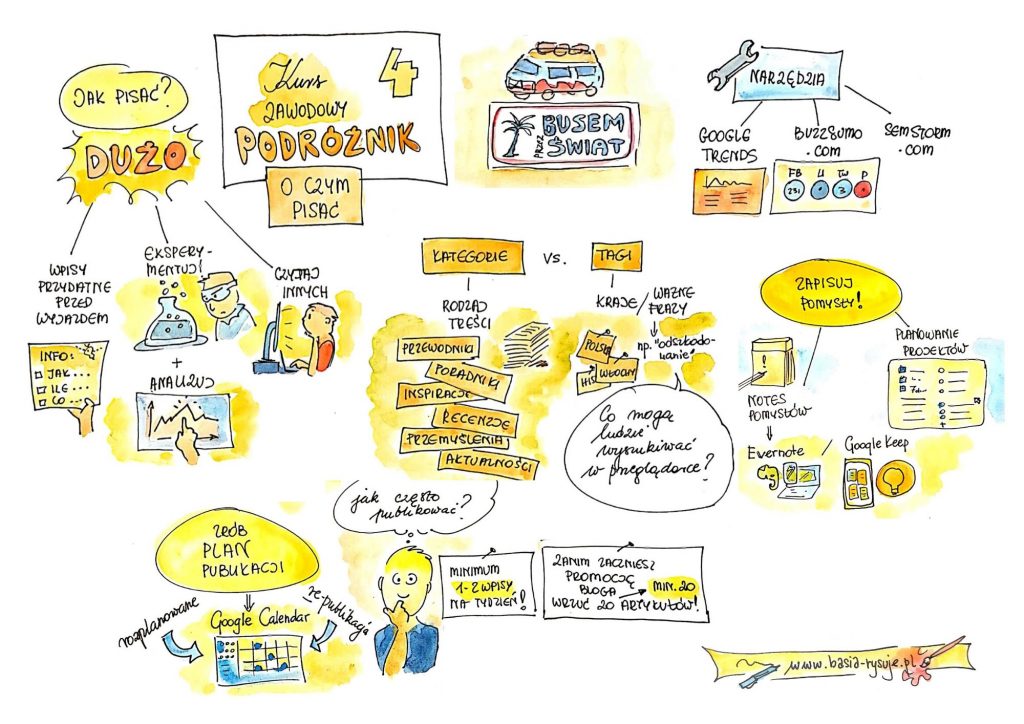 JAK PISAĆ?
DUŻO
Kurs
ZAWODOWY
PODRÓŻNIK
4
O CZYM
PISAĆ
PRZEZ
BUSEM
ŚWIAT
NARZĘDZIA
GOOGLE
TRENDS
BUZZSUMO
.com
FB
TW
P
SEMSTORM
.com
WPISY
PRZYDATNE
PRZED
WYJAZDEM
INFO:
JAK...
ILE...
CO...
EKSPERY-
MENTUJ!
+
ANALIZUJ
CZYTAJ
INNYCH
KATEGORIE
vs.
TAGI
RODZAJ
TREŚCI
PRZEWODNIKI
PORADNIKI
INSPIRACJE
RECENZJE
PRZEMYŚLENIA
AKTUALNOŚCI
KRAJE/
WAŻNE
FRAZY
np. "odszkodo-
wanie"
POLSK
HIS
Co mogą
ludzie
wyszukiwać
w przeglądarce?
ZAPISUJ
POMYSŁY!
NOTES
POMYSŁÓW
Evernote / Google Keep
PLANOWANIE
PROJEKTÓW
ZRÓB
PLAN
PUBLIKACJI
rozplanowane
re-publikacja
Google Calendar
jak często
publikować?
MINIMUM
1-2 WPISY
NA TYDZIEŃ!
ZANIM ZACZNIESZ
PROMOCJĘ
BLOGA
MIN. 20
WRZUĆ 20 ARTYKUŁÓW!
www.basia-rysuje.pl